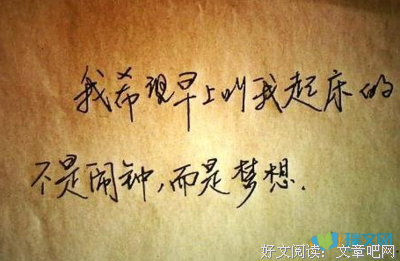 我希望早上叫我起床的
不是闹钟,而是梦想.
好文阅读:文章吧网